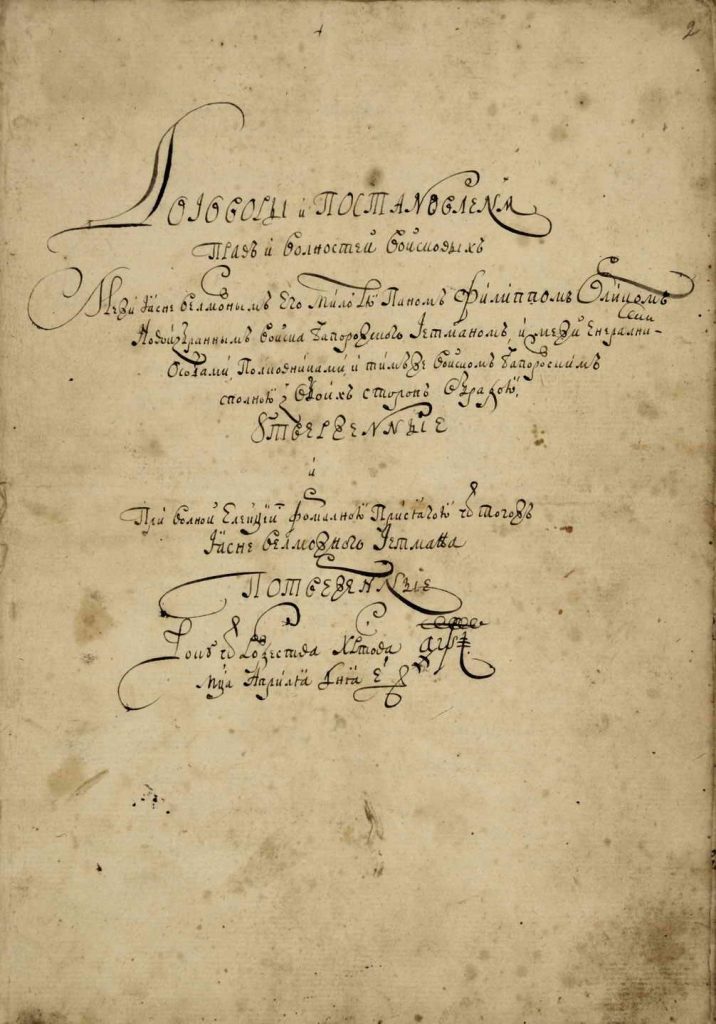 2
Договоры и Постановленѧ
Правъ и волностей войсковыхъ
Межи Ясне велможнымъ Его Милостю Паномъ Филиппомъ Орликомъ
Новоизбраннымъ войска Запорожского Гетманомъ, и межи Енералними
Особами Полковниками, и тимъже войскомъ Запорожскимъ
сполною з обоихъ сторонъ обрадою,
Утверженныие
и
При волной Елекціи формалною Присягою ѿ тогожъ
Ясне велможного Гетмана
Потверженныие
Року ѿ Рожества Христова ҂аѱı
Мца Априлїа дня е҃